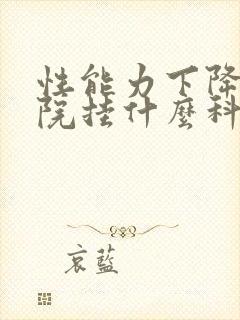 性能力下降
院挂什麼科
哀藍